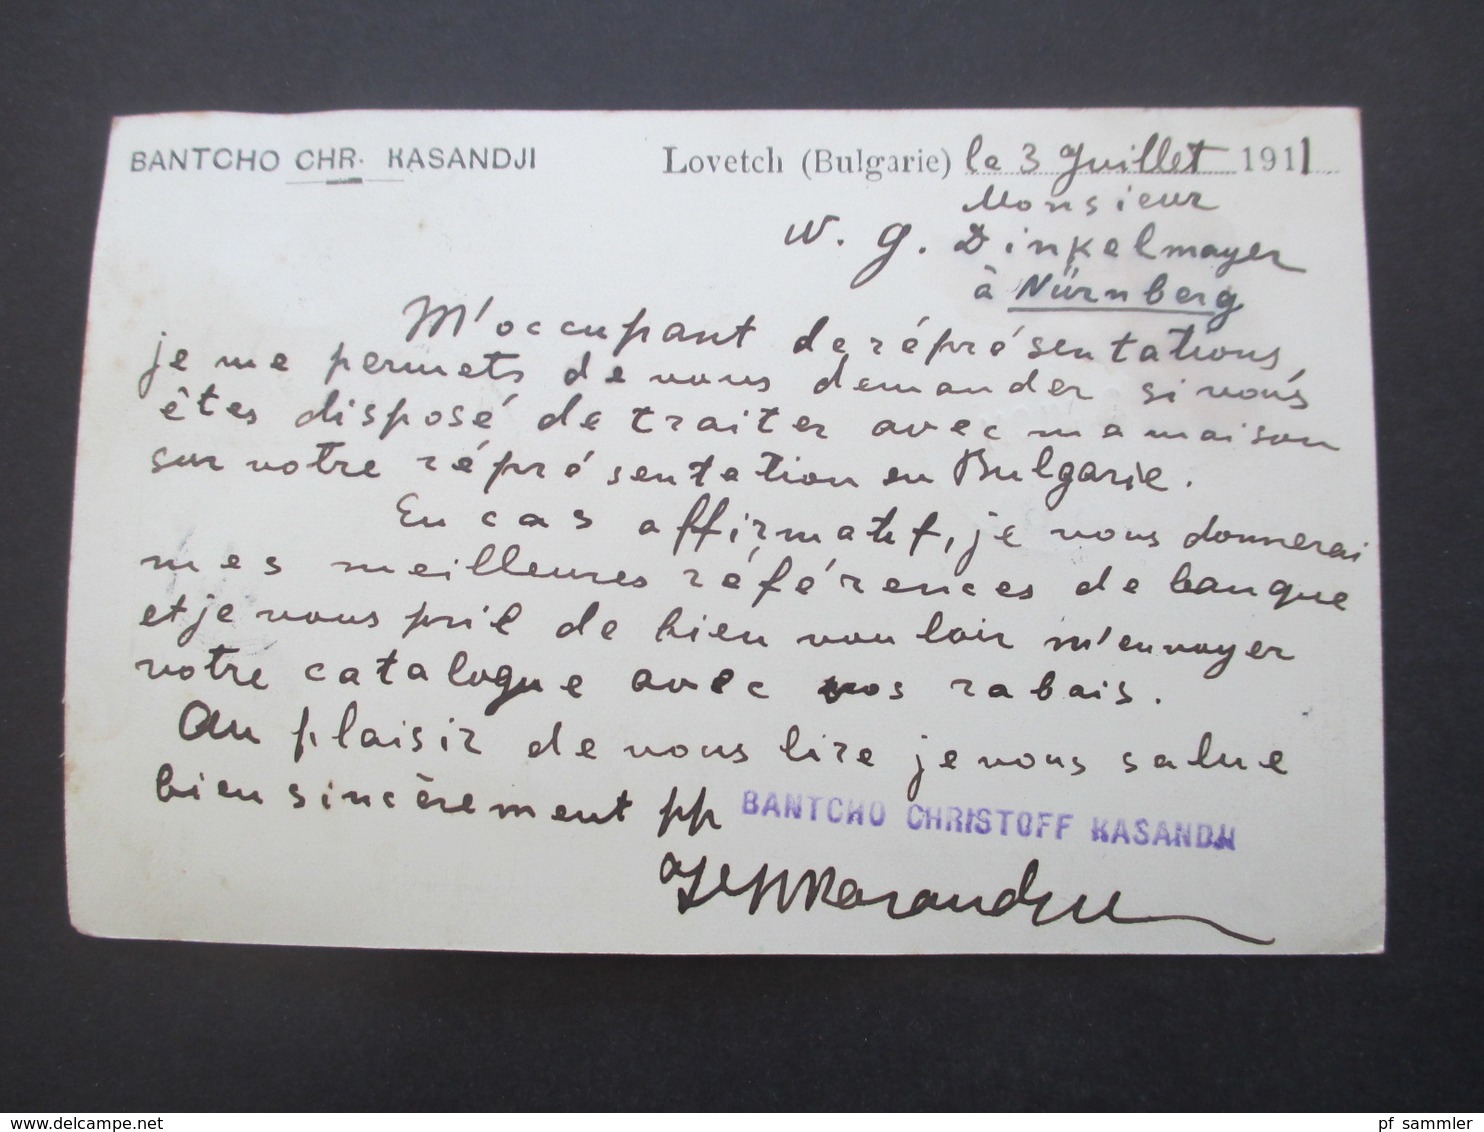 BANTCHO CHR. KASANDJI
Lovetch (Bulgarie) le 3 Juillet 1911
Monsieur
W. G. Dinkelmayer
à Nürnberg
M'occupant de réprésentations,
je me permets de vous demander si vous
êtes disposé de traiter avec ma maison
sur votre réprésentation en Bulgarie.
En cas affirmatif, je vous donnerai
mes meilleures références de banque
et je vous prie de bien vouloir m'envoyer
votre catalogue avec vos rabais.
Au plaisir de vous lire je vous salue
bien sincèrement pp BANTCHO CHRISTOFF KASANDJI
www.delcampe.net
pf_sammler